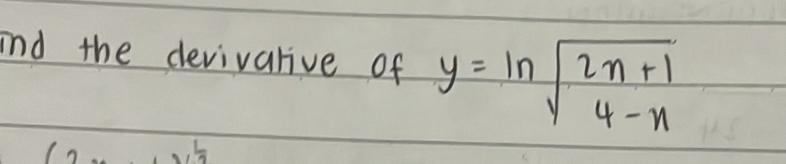 ind the derivative of y = ln √(2x+1 / 4-x)